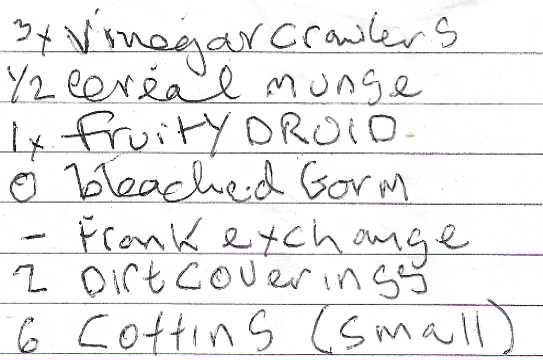 3x Vinegar Crawlers
1/2 Cereal munge
1x Fruity DROID
0 bleached Gorm
- Frank exchange
2 Dirt Coverings
6 Coffins (small)